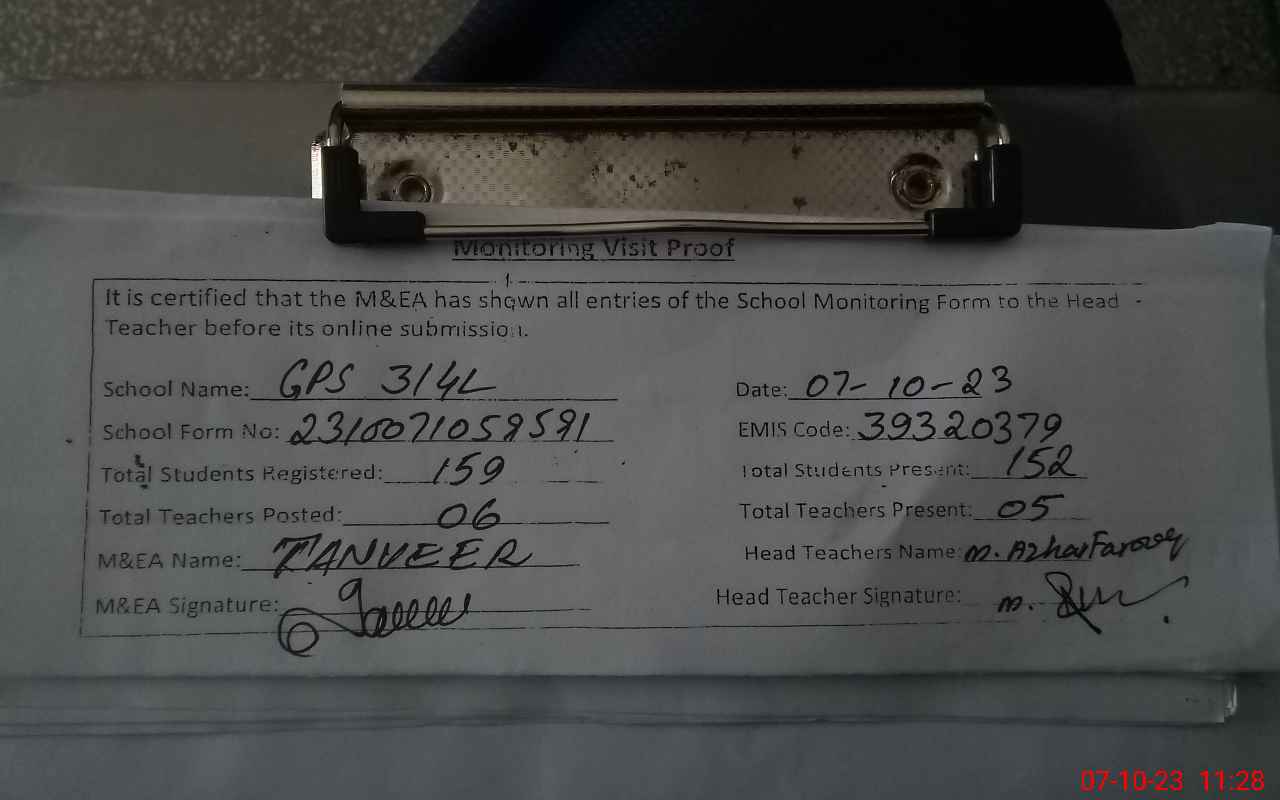 Monitoring Visit Proof
It is certified that the M&EA has shown all entries of the School Monitoring Form to the Head
Teacher before its online submission.
School Name: GPS 3/4L Date: 07-10-23
School Form No: 2310071059591 EMIS Code: 39320379
Total Students Registered: 159 Total Students Present: 152
Total Teachers Posted: 06 Total Teachers Present: 05
M&EA Name: TANVEER Head Teachers Name: M. Azhar Farooq
M&EA Signature: Head Teacher Signature: M.
07-10-23 11:28